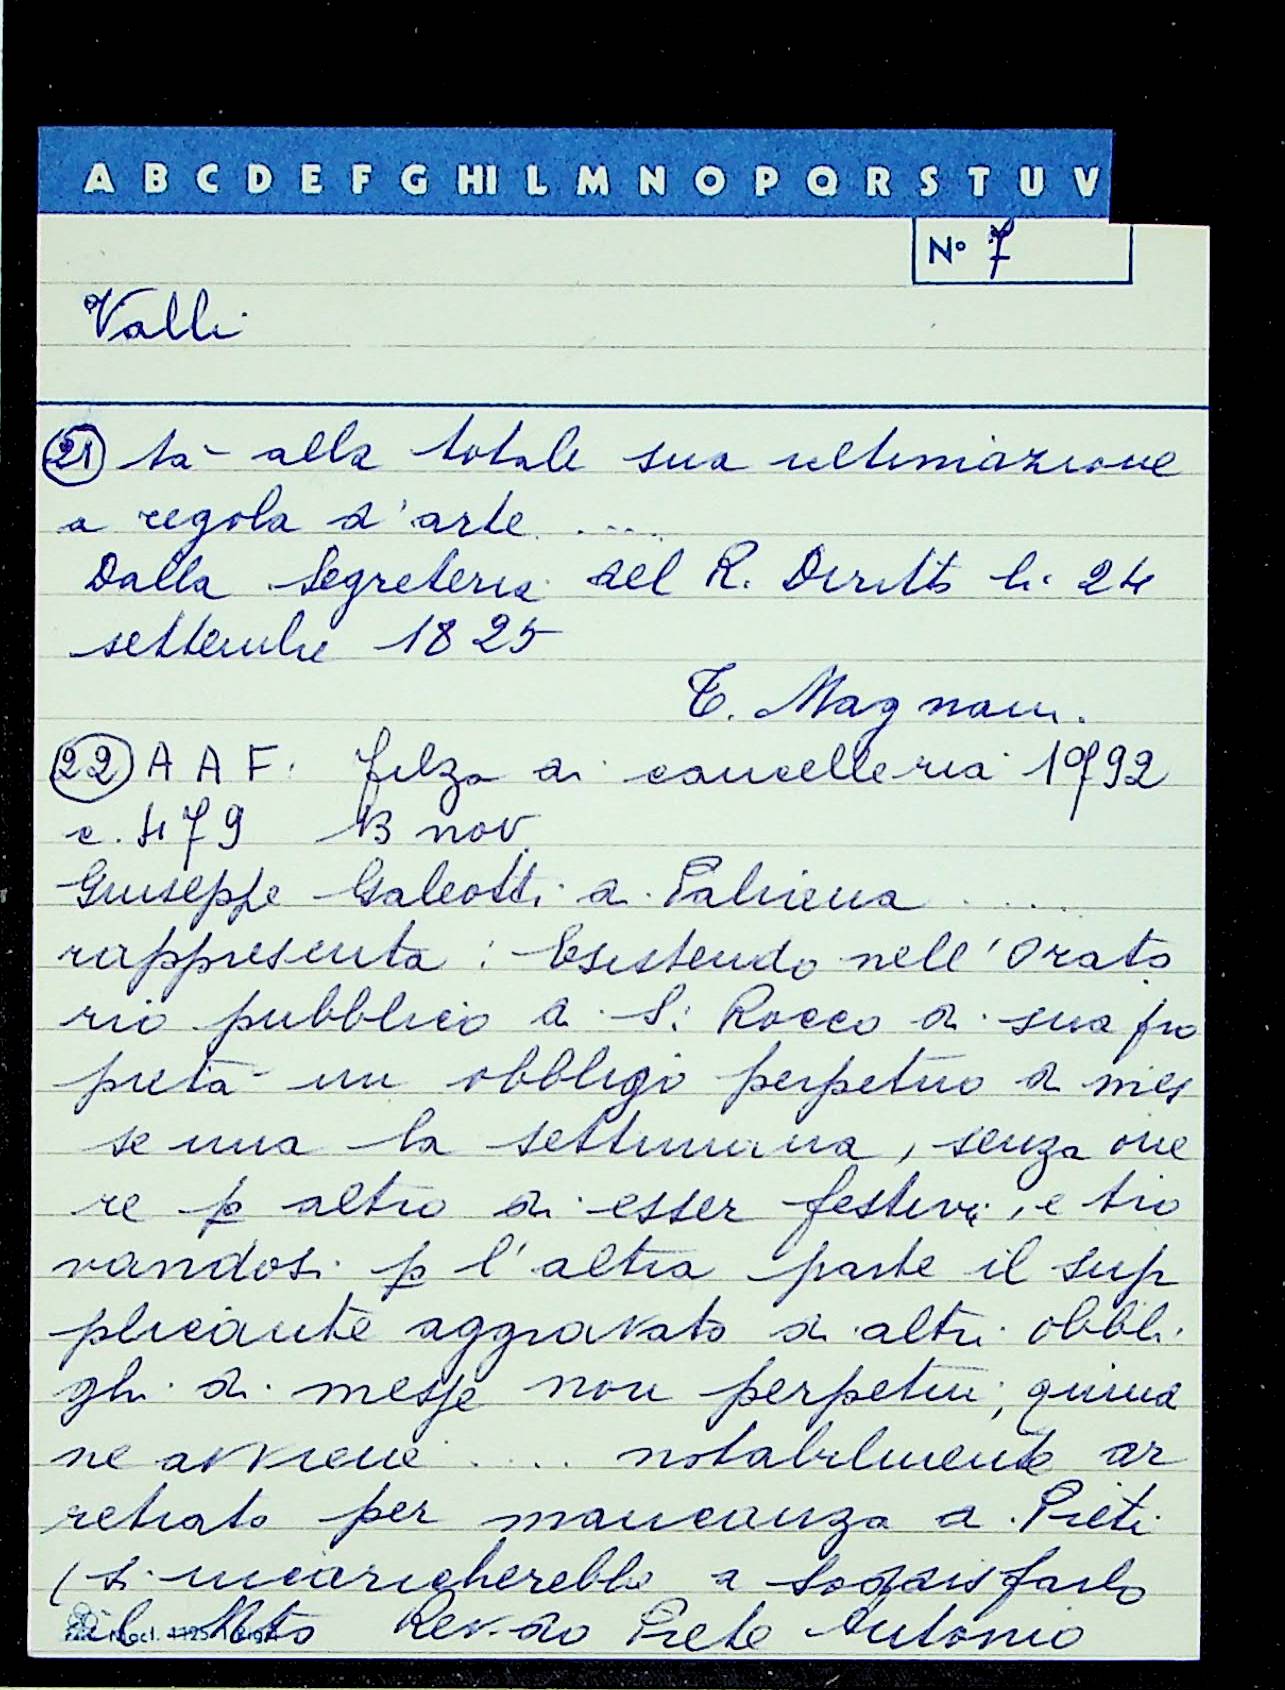 A B C D E F G HI L M N O P Q R S T U V
N° 7
Valli
21 tà alla totale sua ultimazione
a regola d'arte .....
Dalla Segreteria del R. Diritto li 24
settembre 1825
T. Magnani.
22 A A F. filza di cancelleria 1792
c. 479 13 nov.
Giuseppe Galeotti di Palriena .....
rappresenta : Esistendo nell'Orato
rio pubblico di S. Rocco di sua pro
prietà un obbligo perpetuo di mes
se una la settimana, senza one
re p altro di esser festive, e tro
vandosi p l'altra parte il sup
plicante aggravato di altri obbli
ghi di messe non perpetui, quind
ne avviene .... notabilmente ar
retrato per mancanza di Preti
(si incaricherebbe a soddisfarlo
il Molto Rev.do Prete Antonio